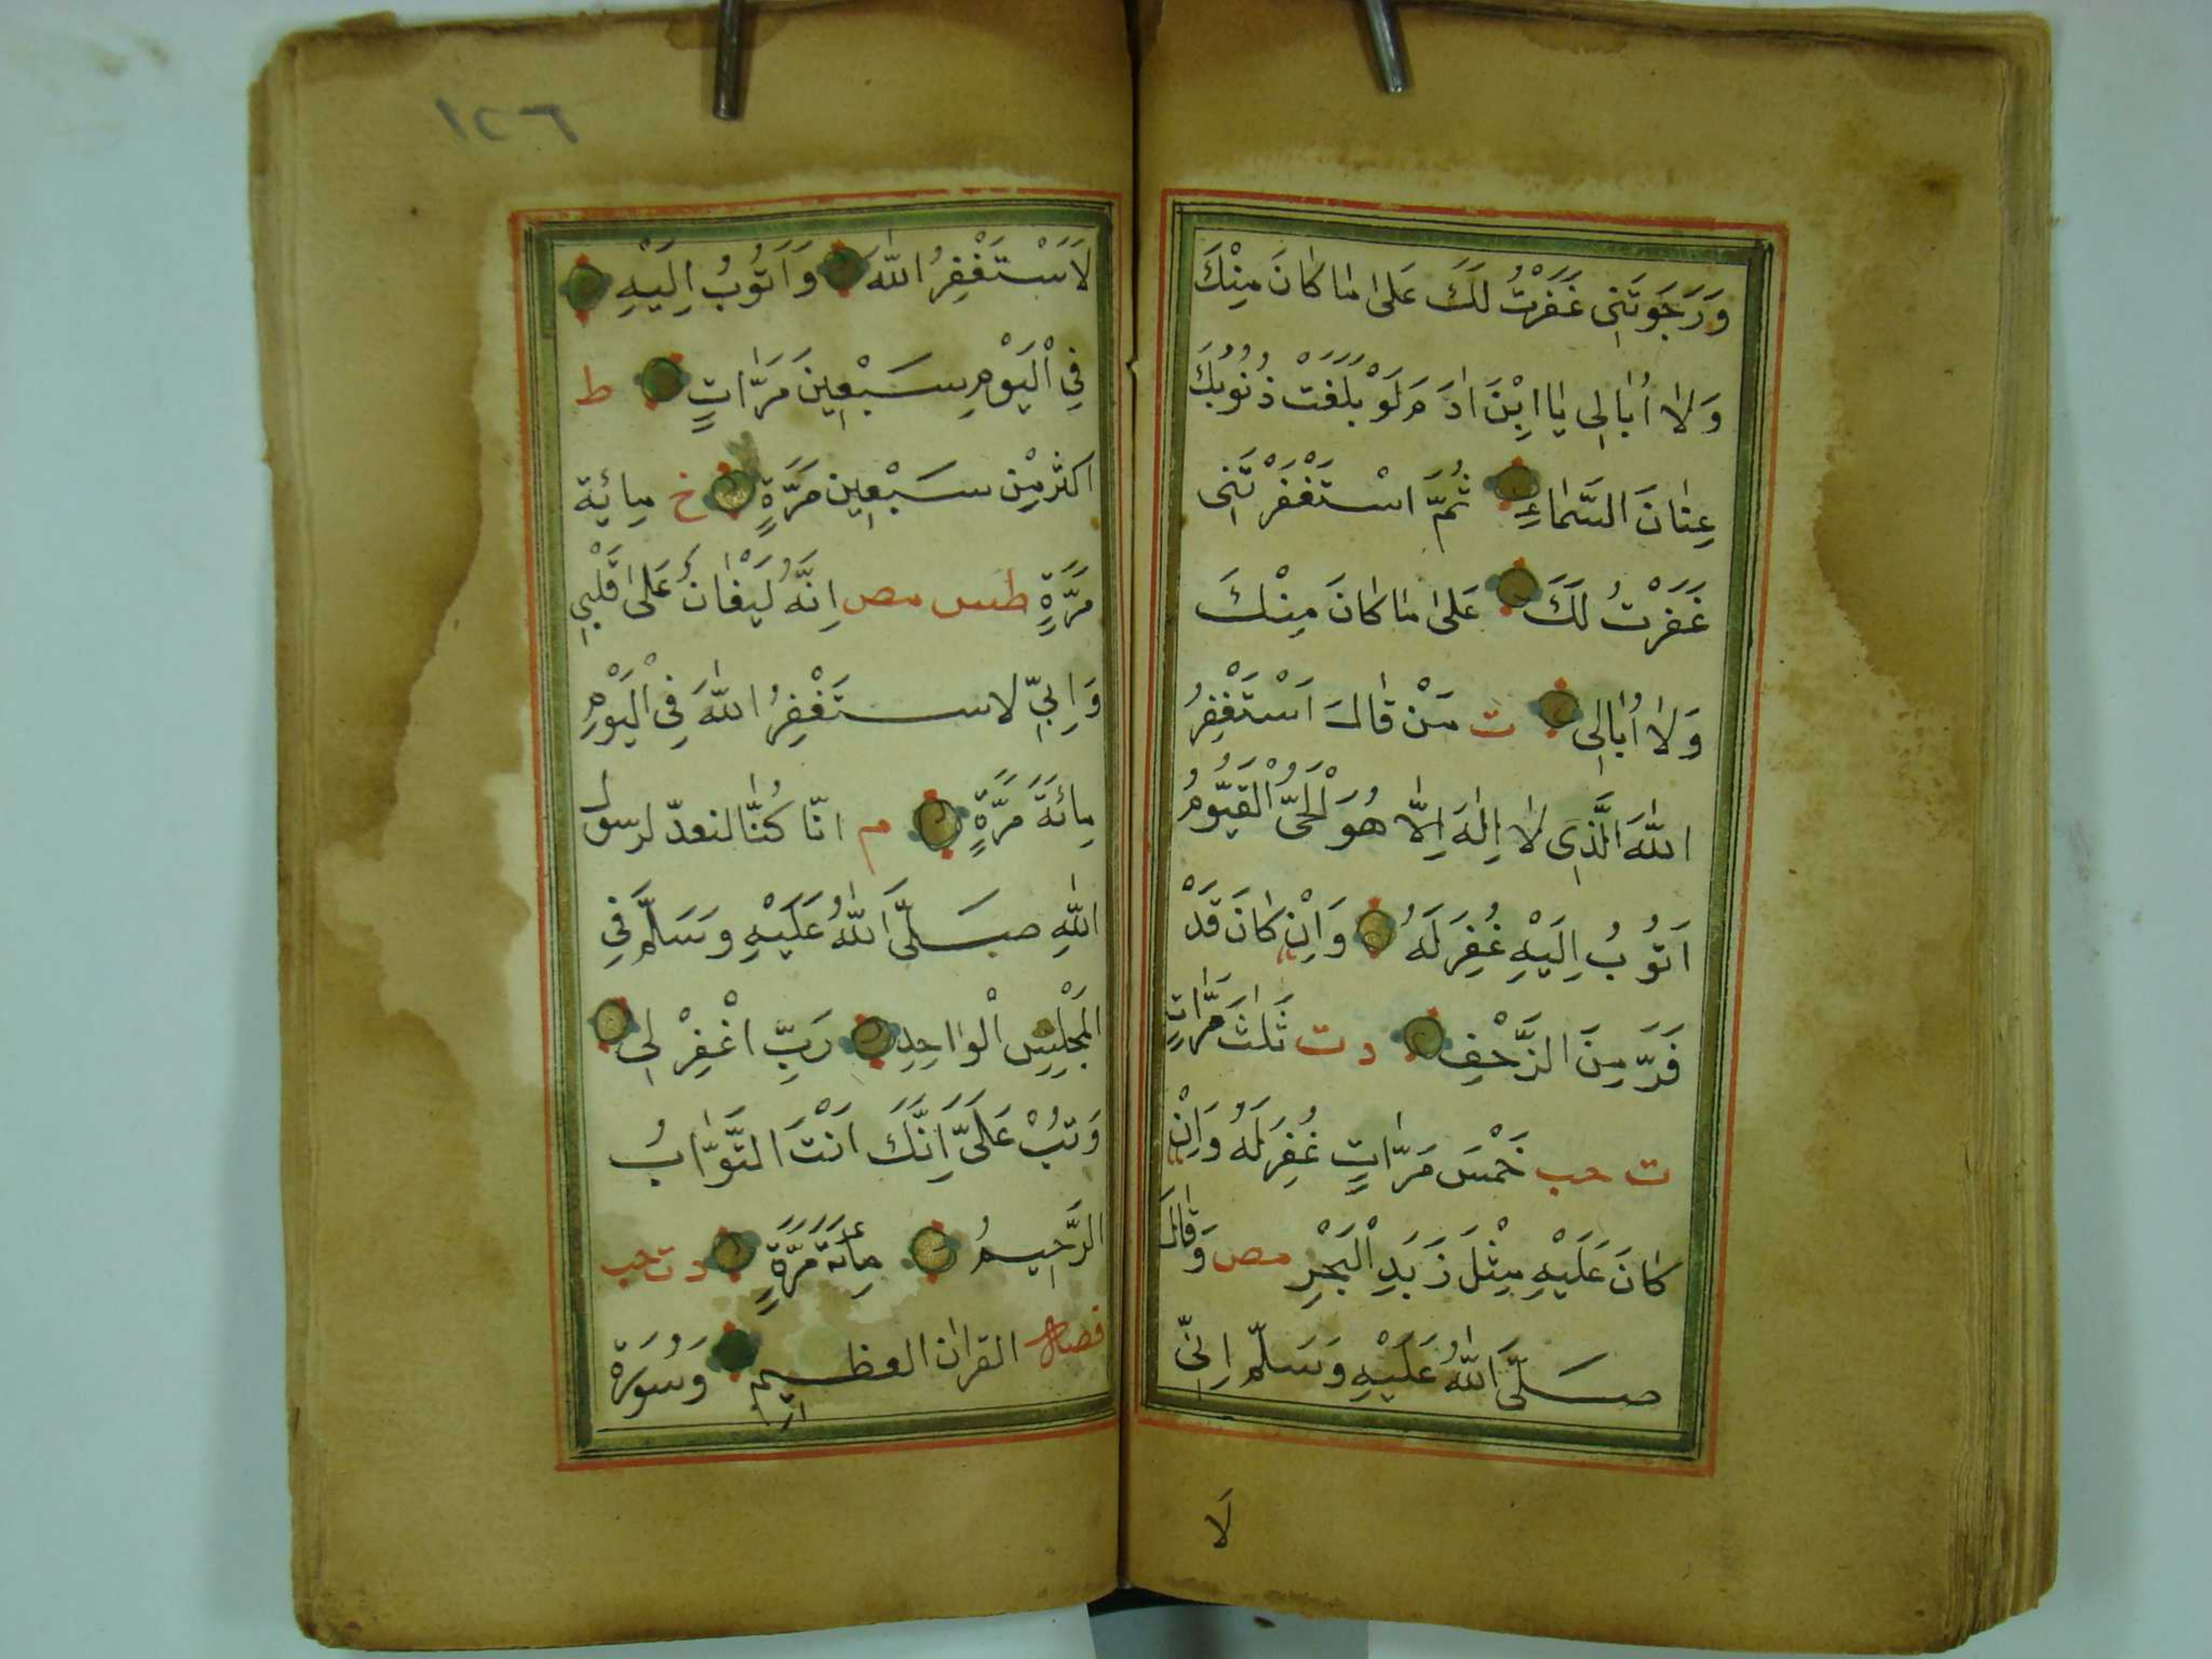 وَرَجَوتَنِى غَفَرْتُ لَكَ عَلىٰ مٰا كٰانَ مِنْكَ
وَلاٰ اُبٰالِى يٰا ابْنَ اٰدَمَ لَوْ بَلَغَتْ ذُنُوبُكَ
عِنٰانَ السَّمٰاءِ ثُمَّ اسْتَغْفَرْتَنِى
غَفَرْتُ لَكَ عَلىٰ مٰا كٰانَ مِنْكَ
وَلاٰ اُبٰالِى ت مَنْ قٰالَ اَسْتَغْفِرُ
اللّٰهَ الَّذِى لاٰ اِلٰهَ اِلاّٰ هُوَ الْحَىُّ الْقَيُّومُ
اَتُوبُ اِلَيْهِ غُفِرَ لَهُ وَاِنْ كٰانَ قَدْ
فَرَّ مِنَ الزَّحْفِ د ت ثَلٰثَ مَرّٰاتٍ
ت حب خَمْسَ مَرّٰاتٍ غُفِرَ لَهُ وَاِنْ
كٰانَ عَلَيْهِ مِثْلَ زَبَدِ الْبَحْرِ مص وَقٰالَ
صَلَّى اللّٰهُ عَلَيْهِ وَسَلَّمَ اِنِّى
لَا
١٢٦
لَاَسْتَغْفِرُ اللّٰهَ وَاَتُوبُ اِلَيْهِ
فِى الْيَوْمِ سَبْعِينَ مَرّٰاتٍ ط
اكثر مِنْ سَبْعِين مَرَّةٍ خ مِائِة
مَرَّةٍ طس مص اِنَّهُ لَيُغٰانُ عَلىٰ قَلْبِى
وَاِنِّى لاستَغْفِرُ اللّٰهَ فِى الْيَوْمِ
مِائَةَ مَرَّةٍ م انّا كُنّٰا لنعدّ لرسول
اللّٰهِ صَلَّى اللّٰهُ عَلَيْهِ وَسَلَّمَ فِى
الْمَجْلِسِ الْوٰاحِدِ رَبِّ اغْفِرْ لِى
وَتُبْ عَلَىَّ اِنَّكَ اَنْتَ التَّوّٰابُ
الرَّحِيمُ مِأَئة مَرَّةٍ د ت حب
فضل القرآن العظيم وَسُورَة